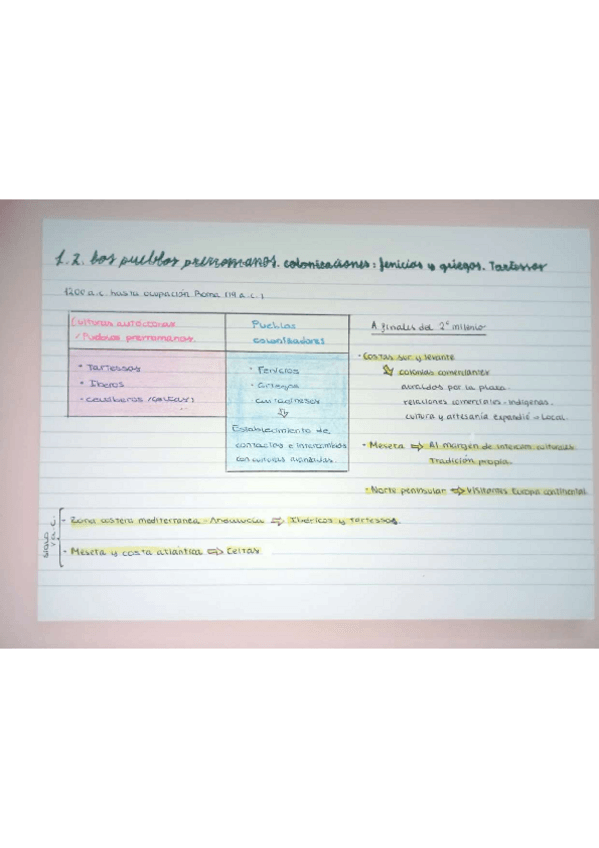 1.2. Los pueblos prerromanos. colonizaciones: fenicios y griegos. Tartessos
1200 a.c. hasta ocupación Roma (19 a.c.)
Culturas autóctonas
Pueblos prerromanos.
• Tartessos
• Iberos
• Celtíberos (celtas)
Pueblos
colonizadores
• Fenicios
• Griegos
Cartagineses
Establecimiento de
contactos e intercambios
con culturas avanzadas.
A finales del 2º milenio
• Costas sur y levante
colonias comerciantes
atraídos por la plata.
relaciones comerciales - indígenas.
cultura y artesanía expandió → Local.
• Meseta ⇒ Al margen de intercam culturales
Tradición propia.
• Norte peninsular ⇒ Visitantes Europa continental.
SIGLO
V a.C.
- Zona costera mediterranea - Andalucía ⇒ Ibéricos y Tartessos.
- Meseta y costa atlántica ⇒ Celtas